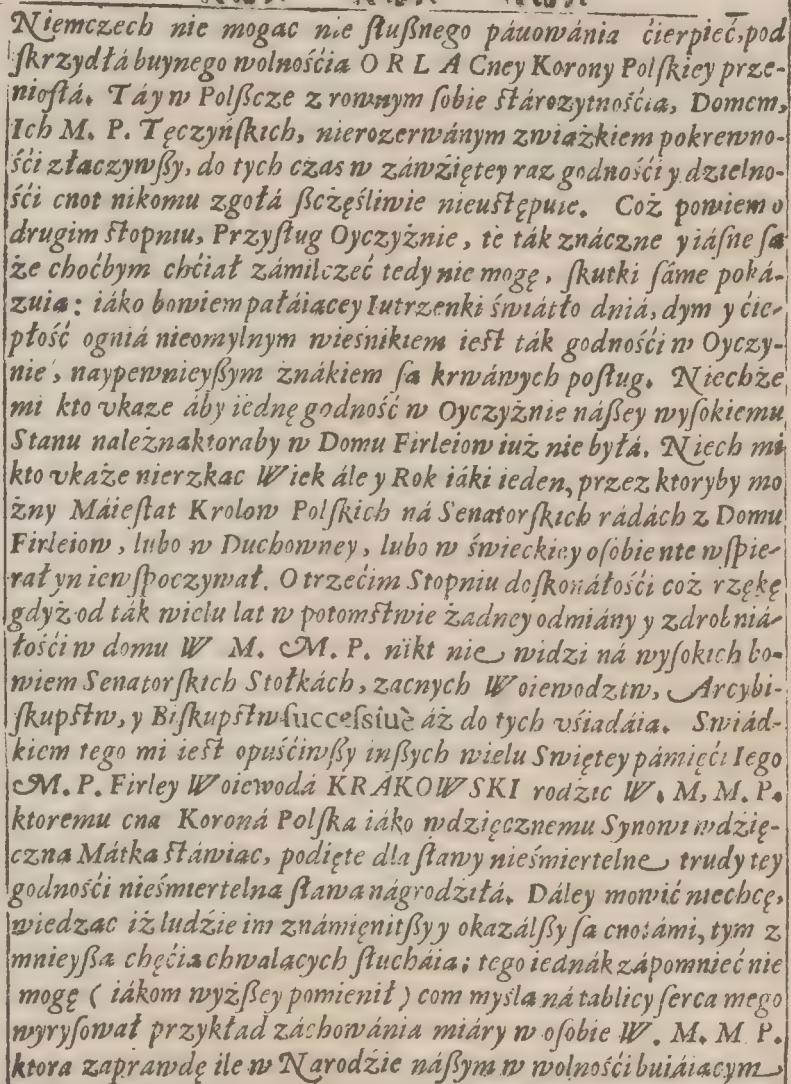 Niemczech nie mogac nie ſłuſznego pánowánia ćierpieć, pod
ſkrzydłá buynego wolnośćia ORLA Cney Korony Polſkiey prze-
nioſłá. Táy w Polſzcze z rownym ſobie ſtározytnośćia, Domem,
Ich M. P. Tęczyńſkich, nierozerwánym zwiażkiem pokrewno-
śći złaczywſzy, do tych czas w záwźiętey raz godnośći y dzielno-
śći cnot nikomu zgołá ſzczęśliwie nieuſtępuie. Coż powiem o
drugim ſtopniu, Przyſług Oyczyźnie, te ták znáczne y iáſne ſa
że choćbym chćiał zámilczeć tedy nie mogę, ſkutki ſáme poká-
zuia: iáko bowiem pałáiacey Iutrzenki świátło dniá, dym y ćie-
płość ogniá nieomylnym wieśnikiem ieſt ták godnośći w Oyczy-
nie, naypewnieyſzym znákiem ſa krwáwych poſług. Niechże
mi kto vkaze áby iednę godność w Oyczyźnie náſzey wyſokiemu
Stanu należnaktoraby w Domu Firleiow iuż nie byłá. Niech mi
kto vkaże nierzkac Wiek ále y Rok iáki ieden, przez ktoryby mo
żny Máieſtat Krolow Polſkich ná Senatorſkich rádách z Domu
Firleiow, lubo w Duchowney, lubo w świeckiey oſobie nie wſpie-
rał y niewſpoczywał. O trzećim Stopniu doſkonáłośći coż rzękę
gdyż od ták wielu lat w potomſtwie żadney odmiány y zdrobniá-
łośći w domu W M. M. P. nikt nie widzi ná wyſokich bo-
wiem Senatorſkich Stołkách, zacnych Woiewodztw, Arcybi-
ſkupſtw, y Biſkupſtw ſucceſsiuè áż do tych vśiadáia. Swiád-
kiem tego mi ieſt opuśćiwſzy inſzych wielu Swiętey pámięći Iego
M. P. Firley Woiewodá KRAKOWSKI rodzic W. M, M. P.
ktoremu cna Koroná Polſka iáko wdzięcznemu Synowi wdzię-
czna Mátka ſtáwiac, podięte dla ſławy nieśmiertelne trudy tey
godnośći nieśmiertelna ſława nágrodziłá. Dáley mowić niechcę,
wiedzac iż ludzie im známięnitſzy y okazálſzy ſa cnotámi, tym z
mnieyſza chęćia chwalacych ſłucháia; tego iednák zápomnieć nie
mogę ( iákom wyżſzey pomienił ) com myſla ná tablicy ſerca mego
wyryſował przykład záchowánia miáry w oſobie W. M. M P.
ktora zaprawdę ile w Narodzie náſzym w wolnośći buiáiacym